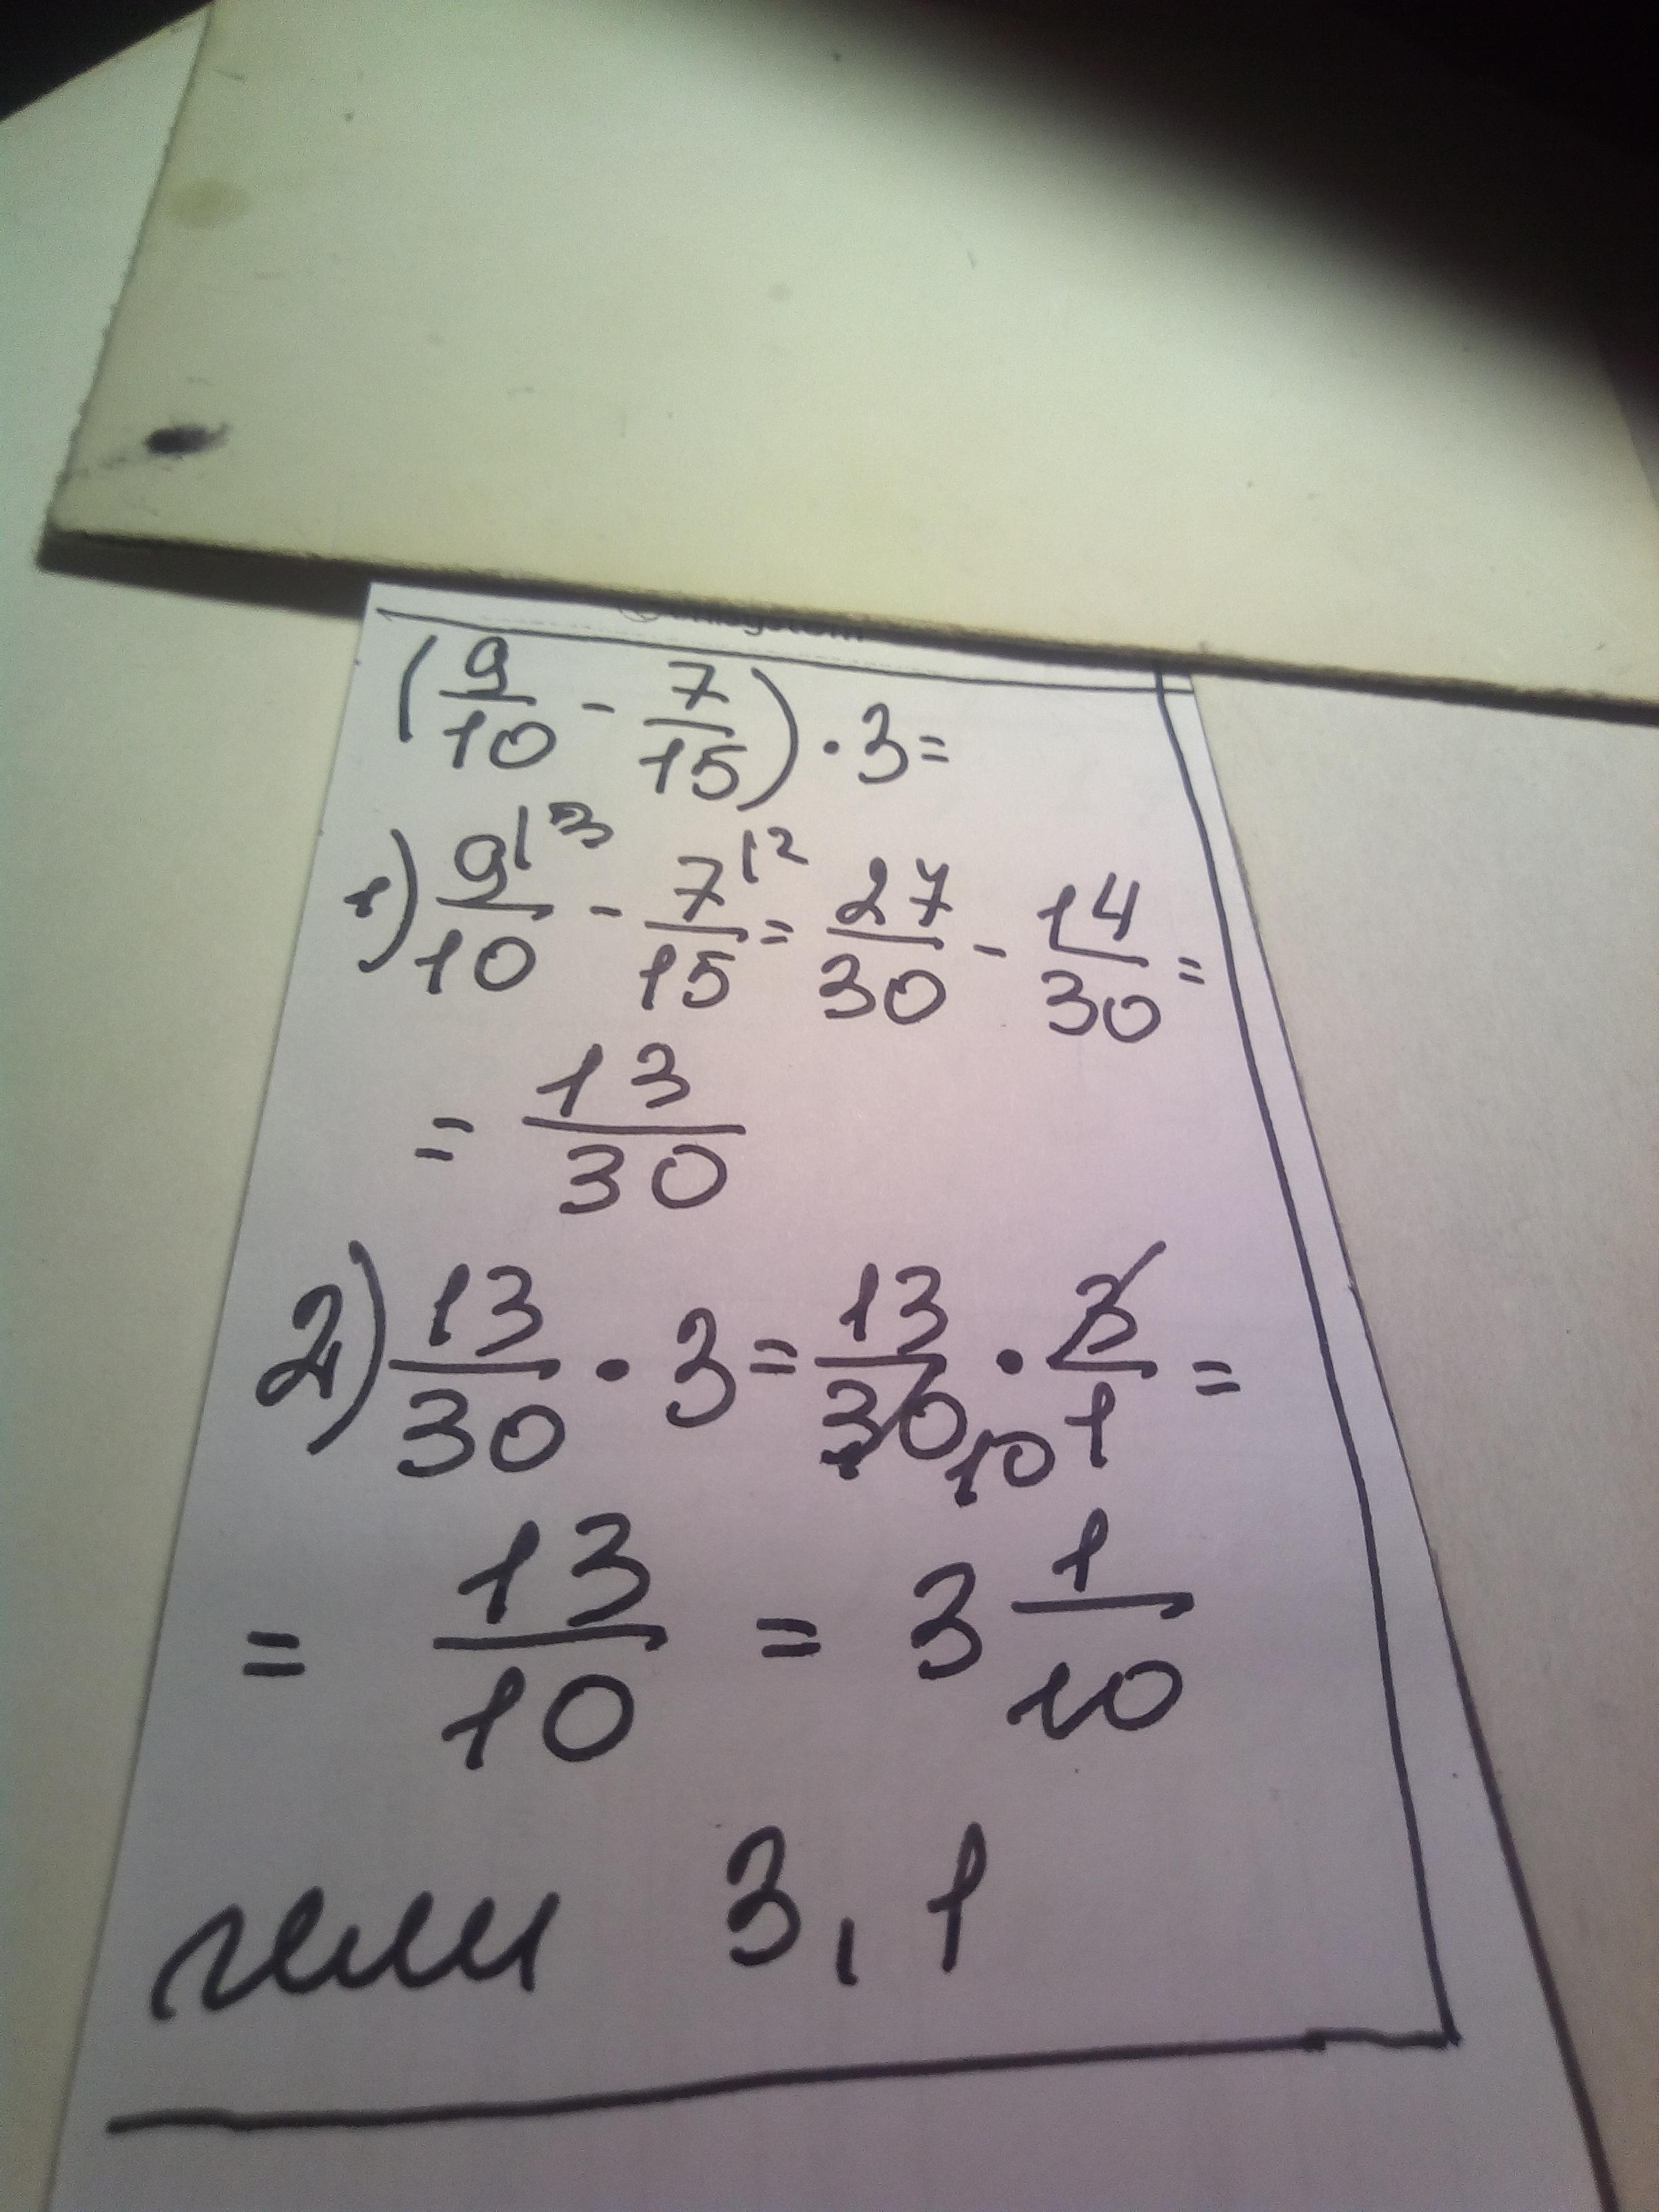 (9/10 - 7/15) · 3 =
1) 9/10 |3 - 7/15 |2 = 27/30 - 14/30 =
= 13/30
2) 13/30 · 3 = 13/30 10 · 3/1 =
= 13/10 = 3 1/10
или 3,1